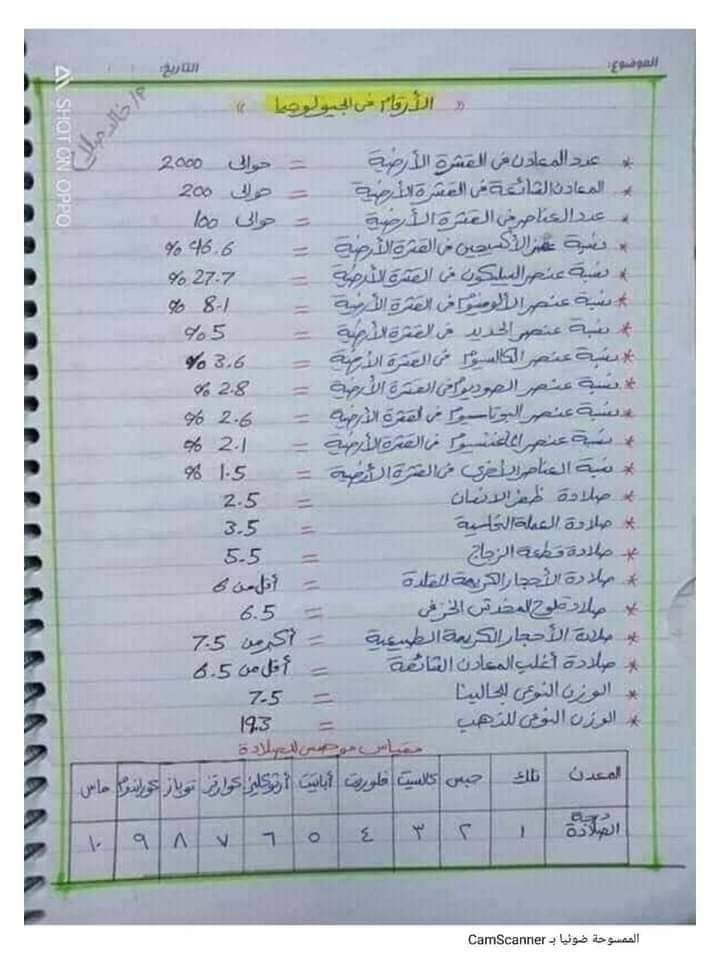 الموضوع:
التاريخ: / /
م/ خالد
SHOT ON OPPO
« الأرقام فى الجيولوجيا »
* عدد المعادن فى القشرة الأرضية = حوالى 2000
* المعادن الشائعة فى القشرة الأرضية = حوالى 200
* عدد العناصر فى القشرة الأرضية = حوالى 100
* نسبة عنصر الأكسجين فى القشرة الأرضية = 46.6 %
* نسبة عنصر السيليكون فى القشرة الأرضية = 27.7 %
* نسبة عنصر الألومنيوم فى القشرة الأرضية = 8.1 %
* نسبة عنصر الحديد فى القشرة الأرضية = 5 %
* نسبة عنصر الكالسيوم فى القشرة الأرضية = 3.6 %
* نسبة عنصر الصوديوم فى القشرة الأرضية = 2.8 %
* نسبة عنصر البوتاسيوم فى القشرة الأرضية = 2.6 %
* نسبة عنصر الماغنسيوم فى القشرة الأرضية = 2.1 %
* نسبة العناصر الأخرى فى القشرة الأرضية = 1.5 %
* صلادة ظفر الانسان = 2.5
* صلادة العملة النحاسية = 3.5
* صلادة قطعة الزجاج = 5.5
* صلادة الأحجار الكريمة المقلدة = أقل من 6
* صلادة لوح المخدش الخزفى = 6.5
* صلادة الأحجار الكريمة الطبيعية = أكبر من 7.5
* صلادة أغلب المعادن الشائعة = أقل من 6.5
* الوزن النوعى للجالينا = 7.5
* الوزن النوعى للذهب = 19.3
مقياس موهس للصلادة
المعدن تلك جبس كالسيت فلوريت أباتيت أرثوكليز كوارتز توباز كوراندوم ماس
درجة الصلادة ١ ٢ ٣ ٤ ٥ ٦ ٧ ٨ ٩ ١٠
الممسوحة ضوئيا بـ CamScanner